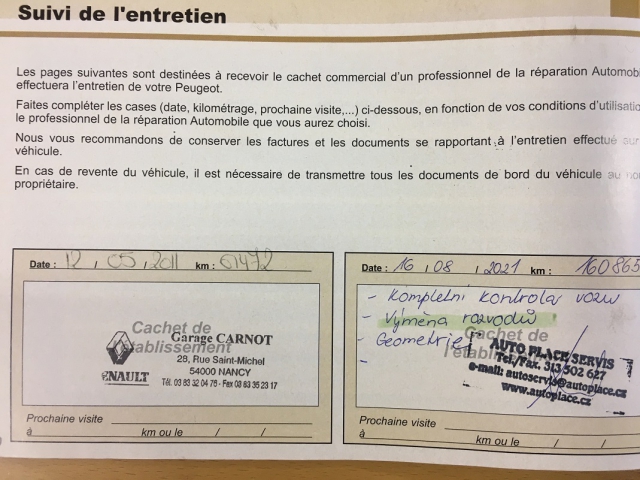 Suivi de l'entretien
Les pages suivantes sont destinées à recevoir le cachet commercial d'un professionnel de la réparation Automobile
effectuera l'entretien de votre Peugeot.
Faites compléter les cases (date, kilométrage, prochaine visite,...) ci-dessous, en fonction de vos conditions d'utilisation
le professionnel de la réparation Automobile que vous aurez choisi.
Nous vous recommandons de conserver les factures et les documents se rapportant à l'entretien effectué sur
véhicule.
En cas de revente du véhicule, il est nécessaire de transmettre tous les documents de bord du véhicule au
propriétaire.
Date : 12 / 05 / 2011 km : 61472
Cachet de
l'établissement
Garage CARNOT
28, Rue Saint-Michel
54000 NANCY
Tél. 03 83 32 04 76 - Fax 03 83 35 23 17
RENAULT
Prochaine visite
à km ou le / /
Date : 16 / 08 / 2021 km : 160865
- Kompletní kontrola vozu
- Výměna rozvodů
- Geometrie
-
Cachet de
l'établissement
AUTO PLACE SERVIS
Tel./Fax. 313 502 627
e-mail: autoservis@autoplace.cz
www.autoplace.cz
Prochaine visite
à km ou le / /